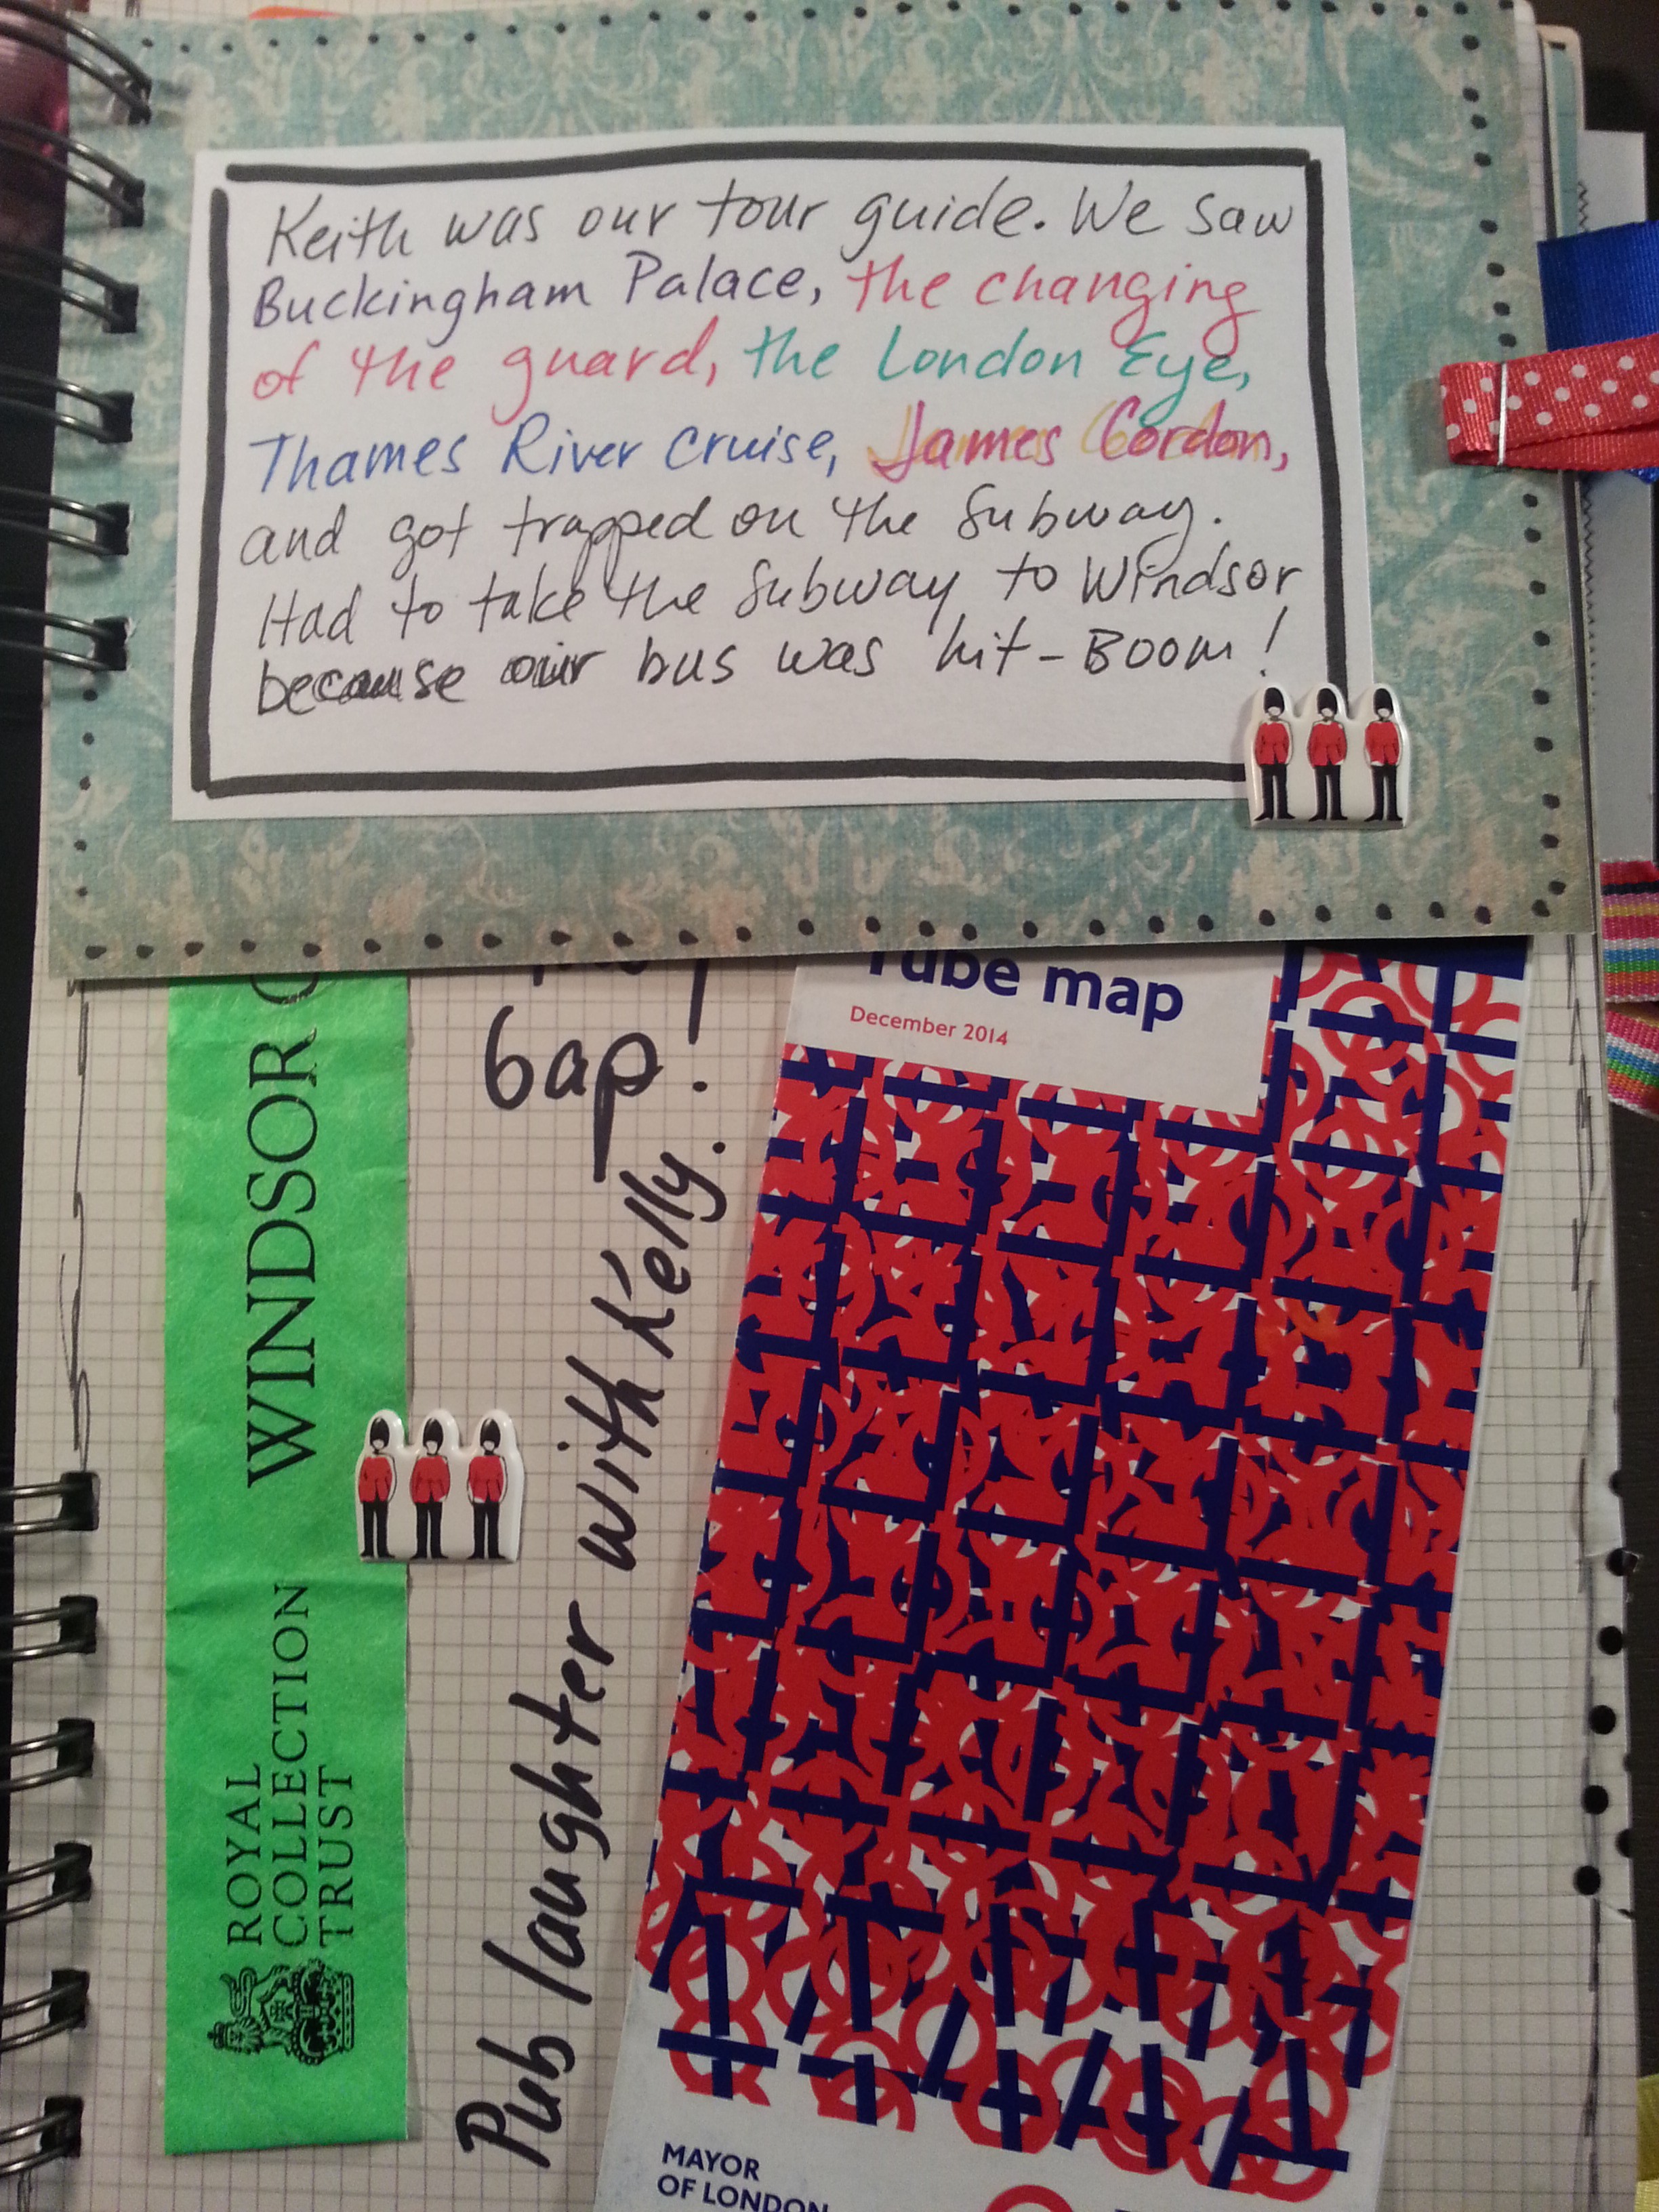 Keith was our tour guide. We saw
Buckingham Palace, the changing
of the guard, the London Eye,
Thames River Cruise, James Cordon,
and got trapped on the subway.
Had to take the subway to Windsor
because our bus was hit - Boom!
Tube map
December 2014
gap!
Pub laughter with Kelly.
WINDSOR
ROYAL
COLLECTION
TRUST
MAYOR
OF LONDON